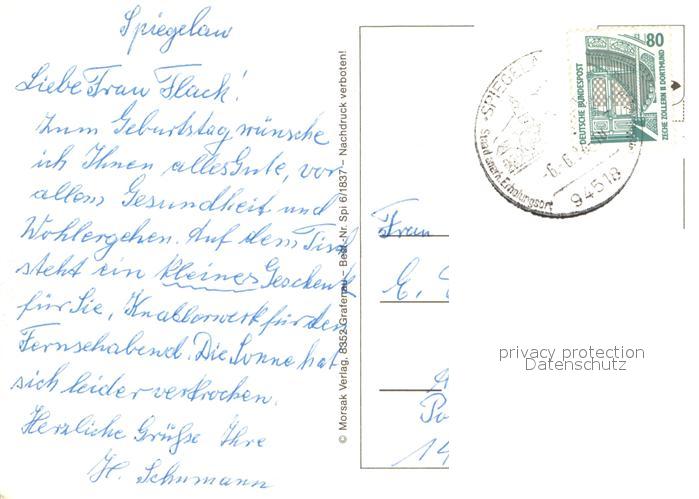 Spiegelau
Liebe Frau Flack!
Zum Geburtstag wünsche
ich Ihnen alles Gute, vor
allem Gesundheit und
Wohlergehen. Auf dem Tisch
steht ein kleines Geschenk
für Sie, Knabberwerk für den
Fernsehabend. Die Sonne hat
sich leider verkrochen.
Herzliche Grüße Ihre
H. Schumann
© Morsak Verlag, 8352 Grafenau – Best.-Nr. Spi 6/1837 – Nachdruck verboten!
80
DEUTSCHE BUNDESPOST
ZECHE ZOLLERN II DORTMUND
SPIEGELA
Erholungsort
94518
Frau
E.
14
privacy protection
Datenschutz